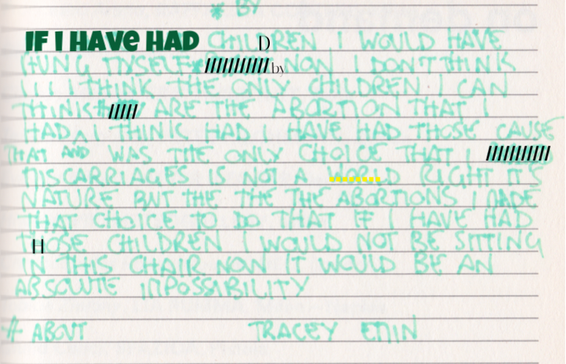 # BY
IF I HAVE HAD CHILDREN I WOULD HAVE
HUNG MYSELF by NOW I DON'T THINK
I I I THINK THE ONLY CHILDREN I CAN
THINK ARE THE ABORTION THAT I
HAD, I THINK HAD I HAVE HAD THOSE CAUSE
THAT AND WAS THE ONLY CHOICE THAT I
MISCARRIAGES IS NOT A WORLD RIGHT IT'S
NATURE BUT THE THE THE ABORTIONS I MADE
THAT CHOICE TO DO THAT IF I HAVE HAD
THOSE CHILDREN I WOULD NOT BE SITTING
IN THIS CHAIR NOW IT WOULD BE AN
ABSOLUTE IMPOSSABILITY
# ABOUT TRACEY EMIN